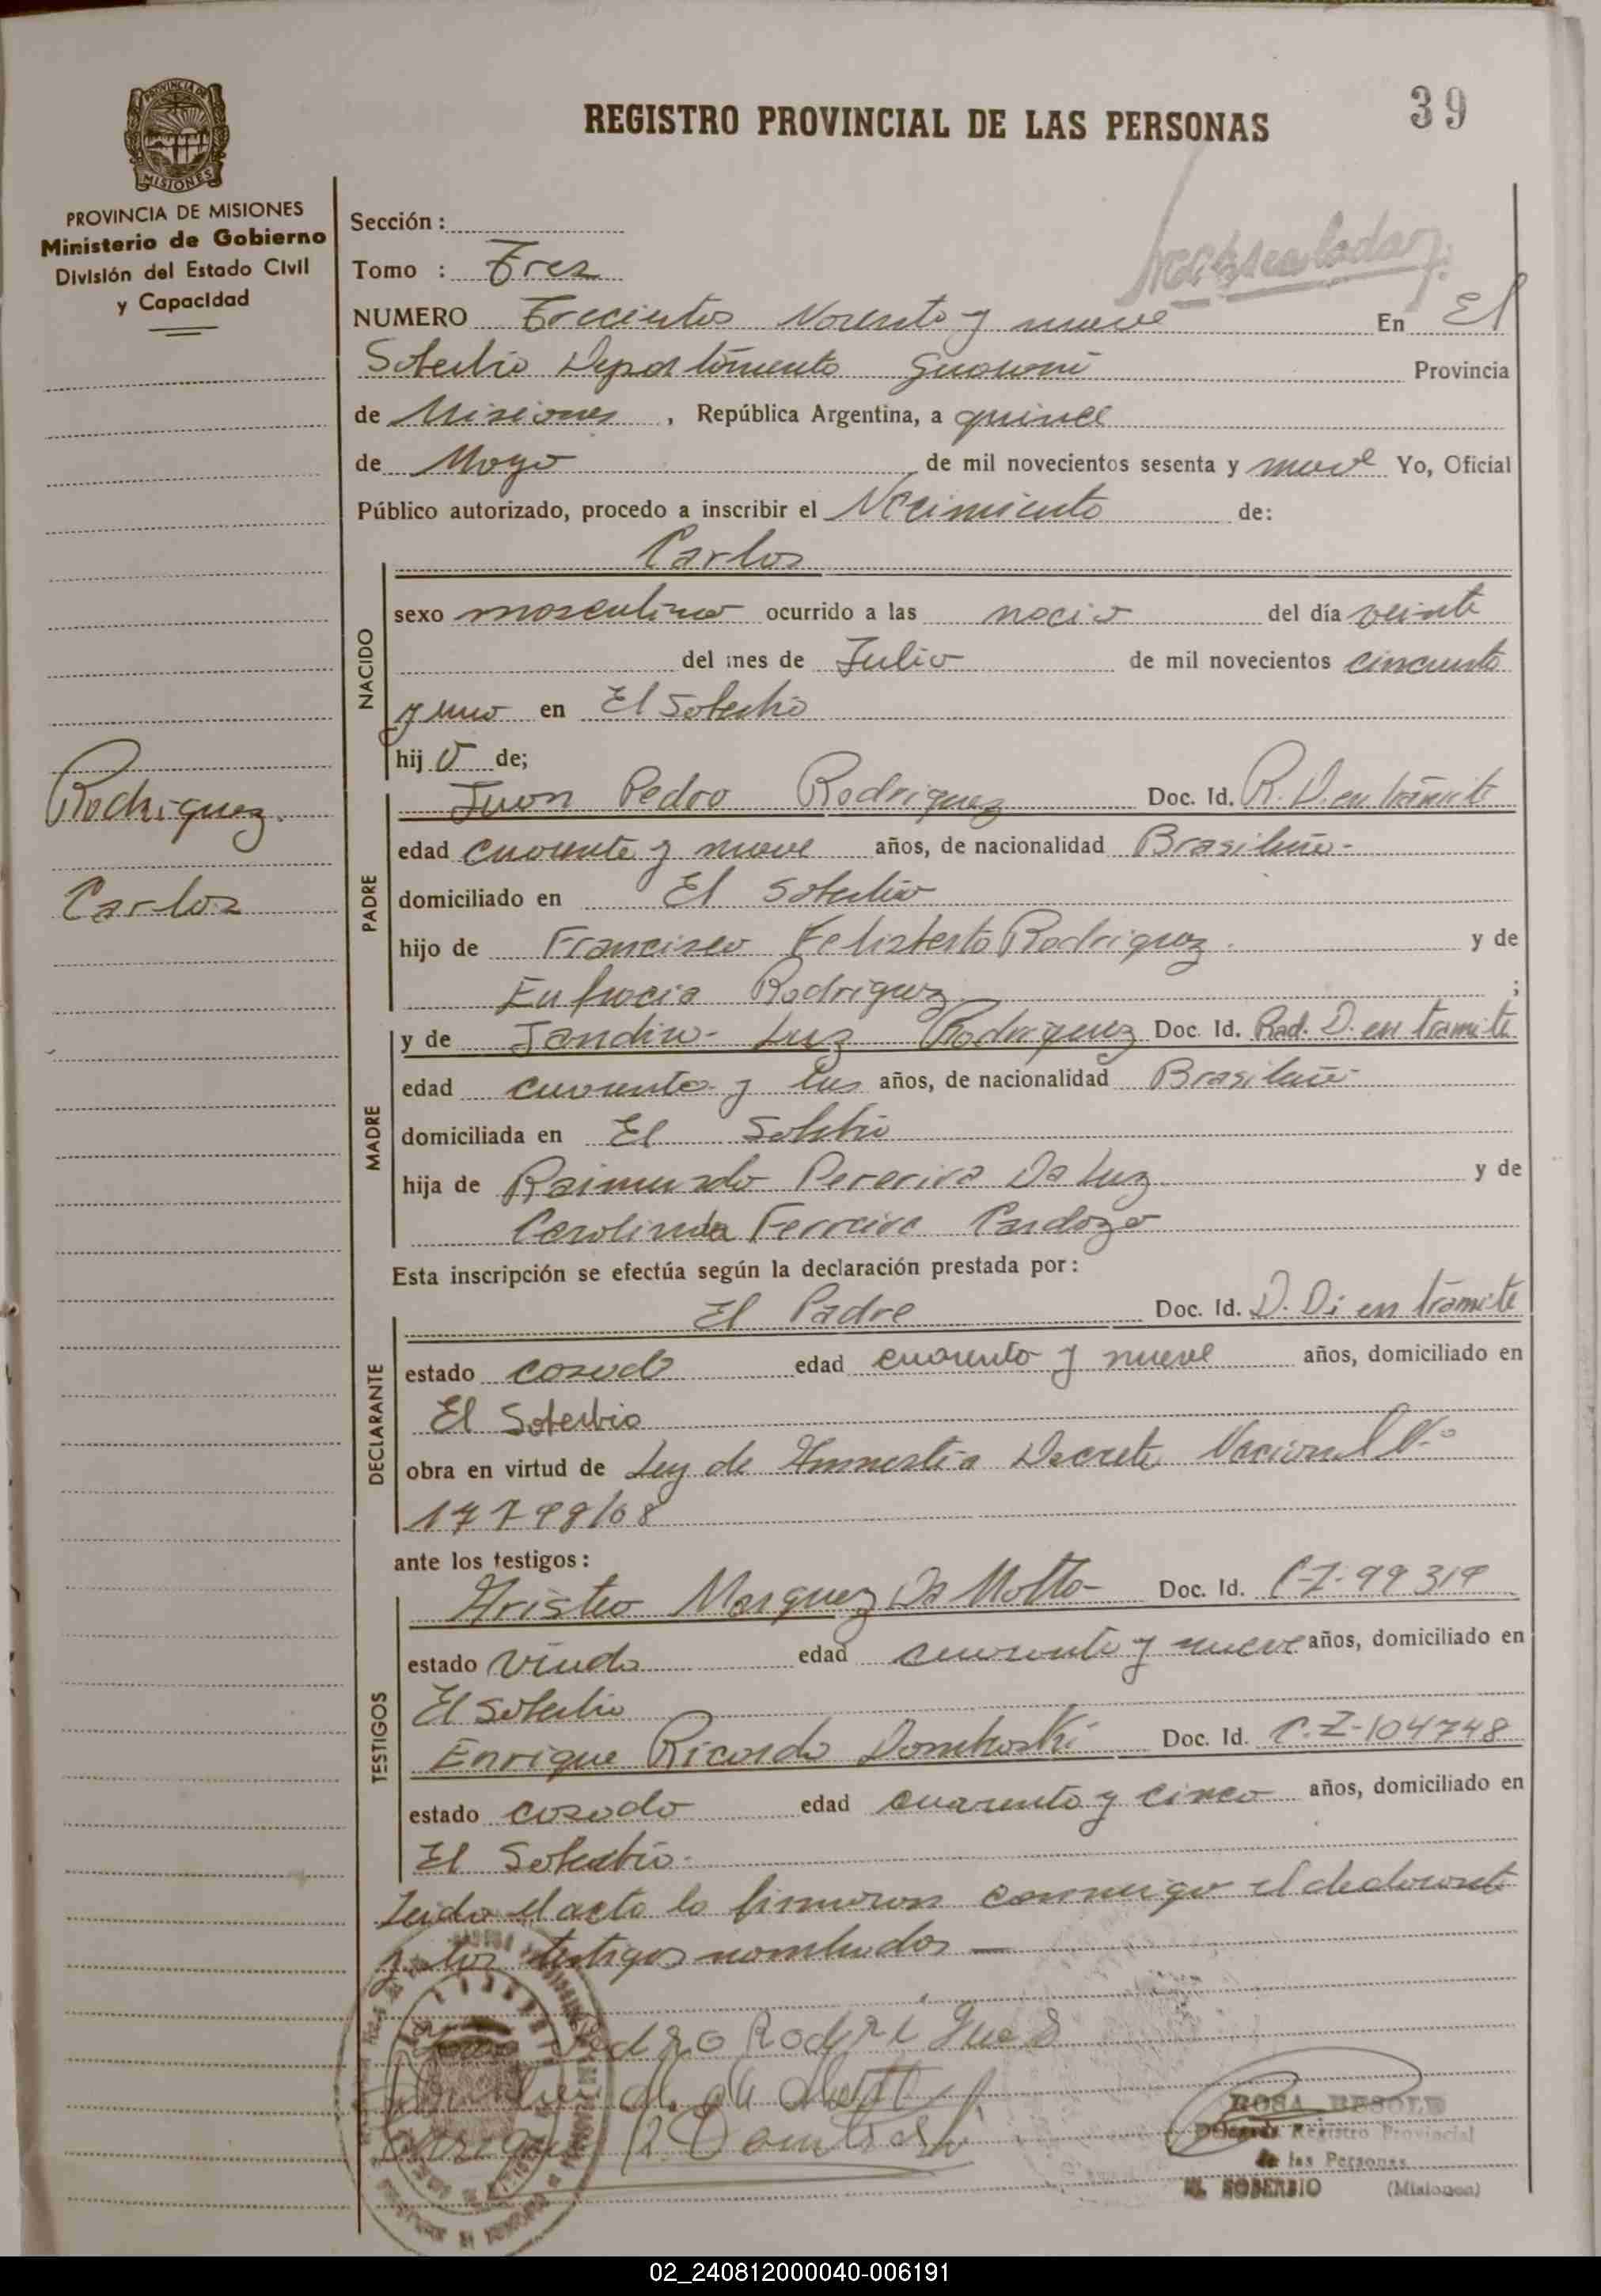 39
REGISTRO PROVINCIAL DE LAS PERSONAS
PROVINCIA DE MISIONES
MISIONES
PROVINCIA DE MISIONES
Ministerio de Gobierno
División del Estado Civil
y Capacidad
Sección :
Tomo : Tres
NUMERO Trecientos Noventa y nueve En El
Soberbio Departamento Guarani Provincia
de Misiones , República Argentina, a quince
de Mayo de mil novecientos sesenta y nueve Yo, Oficial
Público autorizado, procedo a inscribir el Nacimiento de:
Carlos
NACIDO
sexo masculino ocurrido a las del día veinte
del mes de Julio de mil novecientos cincuenta
y uno en El Soberbio
hij o de;
Rodriguez.
Carlos
PADRE
Juan Pedro Rodriguez Doc. Id. R. D. en trámite
edad cuarenta y nueve años, de nacionalidad Brasileña-
domiciliado en El Soberbio
hijo de Francisco Felisberto Rodriguez. y de
Eufrocia Rodriguez ;
MADRE
y de Luz Rodriguez Doc. Id. Rad. D. en tramite
edad cuarenta y años, de nacionalidad Brasileña-
domiciliada en El Soberbio
hija de Raimundo Pererira Da Luz y de
Carolinda Ferreira Cardozo
Esta inscripción se efectúa según la declaración prestada por :
DECLARANTE
El Padre Doc. Id. D. Di en trámite
estado casado edad cuarenta y nueve años, domiciliado en
El Soberbio
obra en virtud de Ley de Amnestia Decreto Nacional Nº
ante los testigos :
TESTIGOS
Aristeo Marquez Da Motta- Doc. Id.
estado Viudo edad cuarenta y nueve años, domiciliado en
El Soberbio
Enrique Ricardo Domkoski Doc. Id. C.I-104748
estado casado edad cuarenta y cinco años, domiciliado en
El Soberbio-
Leida el acta la firmaron conmigo el declarante
y los testigos nombrados —
Pedro Rodrigues
ROSA
Registro Provincial
de las Personas
EL SOBERBIO (Misiones)
02_240812000040-006191